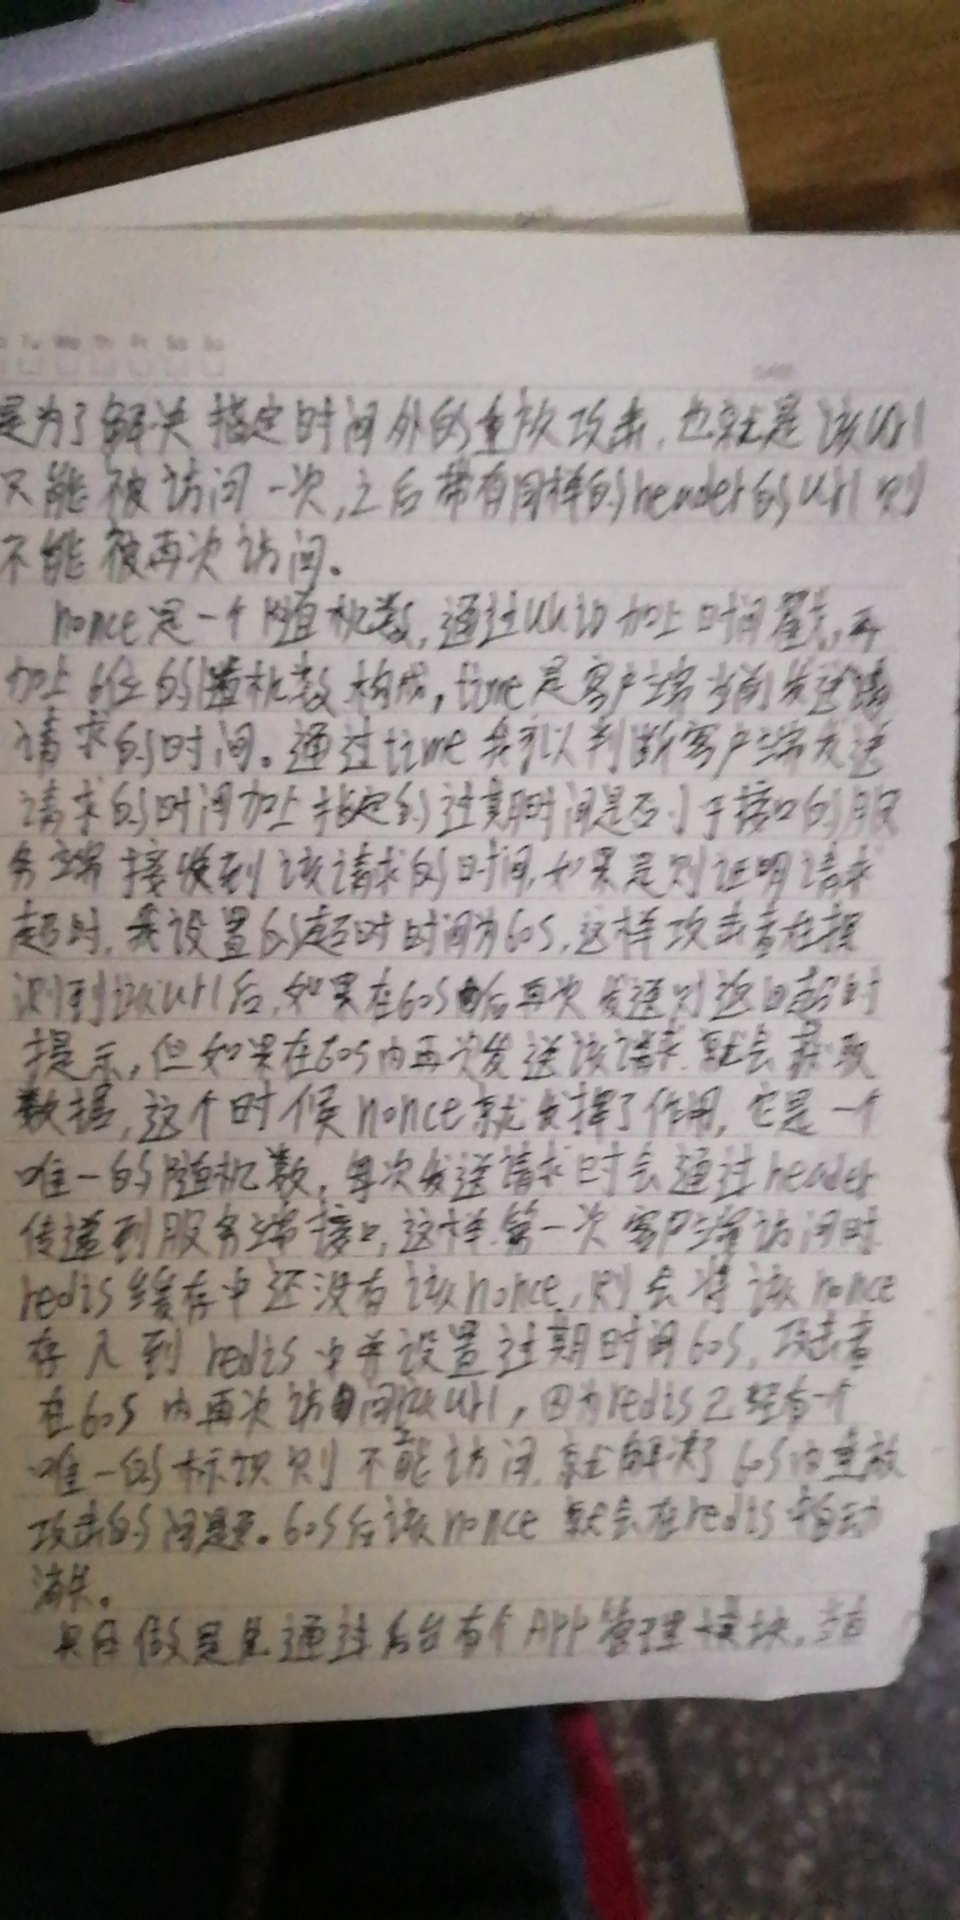 Tu We Th Fr Sa Su
是为了解决指定时间外的重放攻击,也就是该url
只能被访问一次,之后带有同样的header的url则
不能被再次访问。
nonce是一个随机数,通过uuid加上时间戳,再
加上6位的随机数构成,time是客户端当前发送请
请求的时间。通过time我可以判断客户端发送
请求的时间加上指定的过期时间是否小于接口的服
务端接收到该请求的时间,如果是则证明请求
超时,我设置的超时时间为60s,这样攻击者在探
测到该url后,如果在60s后再次发送则返回超时
提示,但如果在60s内再次发送该请求,就会获取
数据,这个时候nonce就发挥了作用,它是一个
唯一的随机数,每次发送请求时会通过header
传递到服务端接口,这样第一次客户端访问时
redis缓存中还没有该nonce,则会将该nonce
存入到redis中并设置过期时间60s,攻击者
在60s内再次访问该url,因为redis已经有一个
唯一的标识则不能访问,就解决了60s内重放
攻击的问题。60s后该nonce就会在redis中自动
消失。
具体做是通过后台有个APP管理模块,